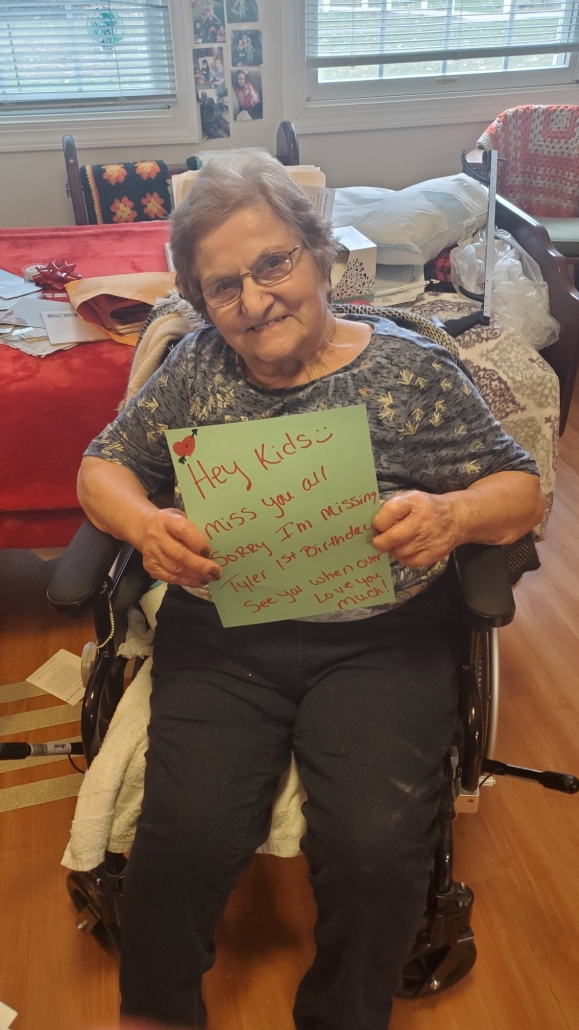 Hey Kids
miss you all
Sorry I'm missing
Tyler 1st Birthday
See you when over
Love you
much!